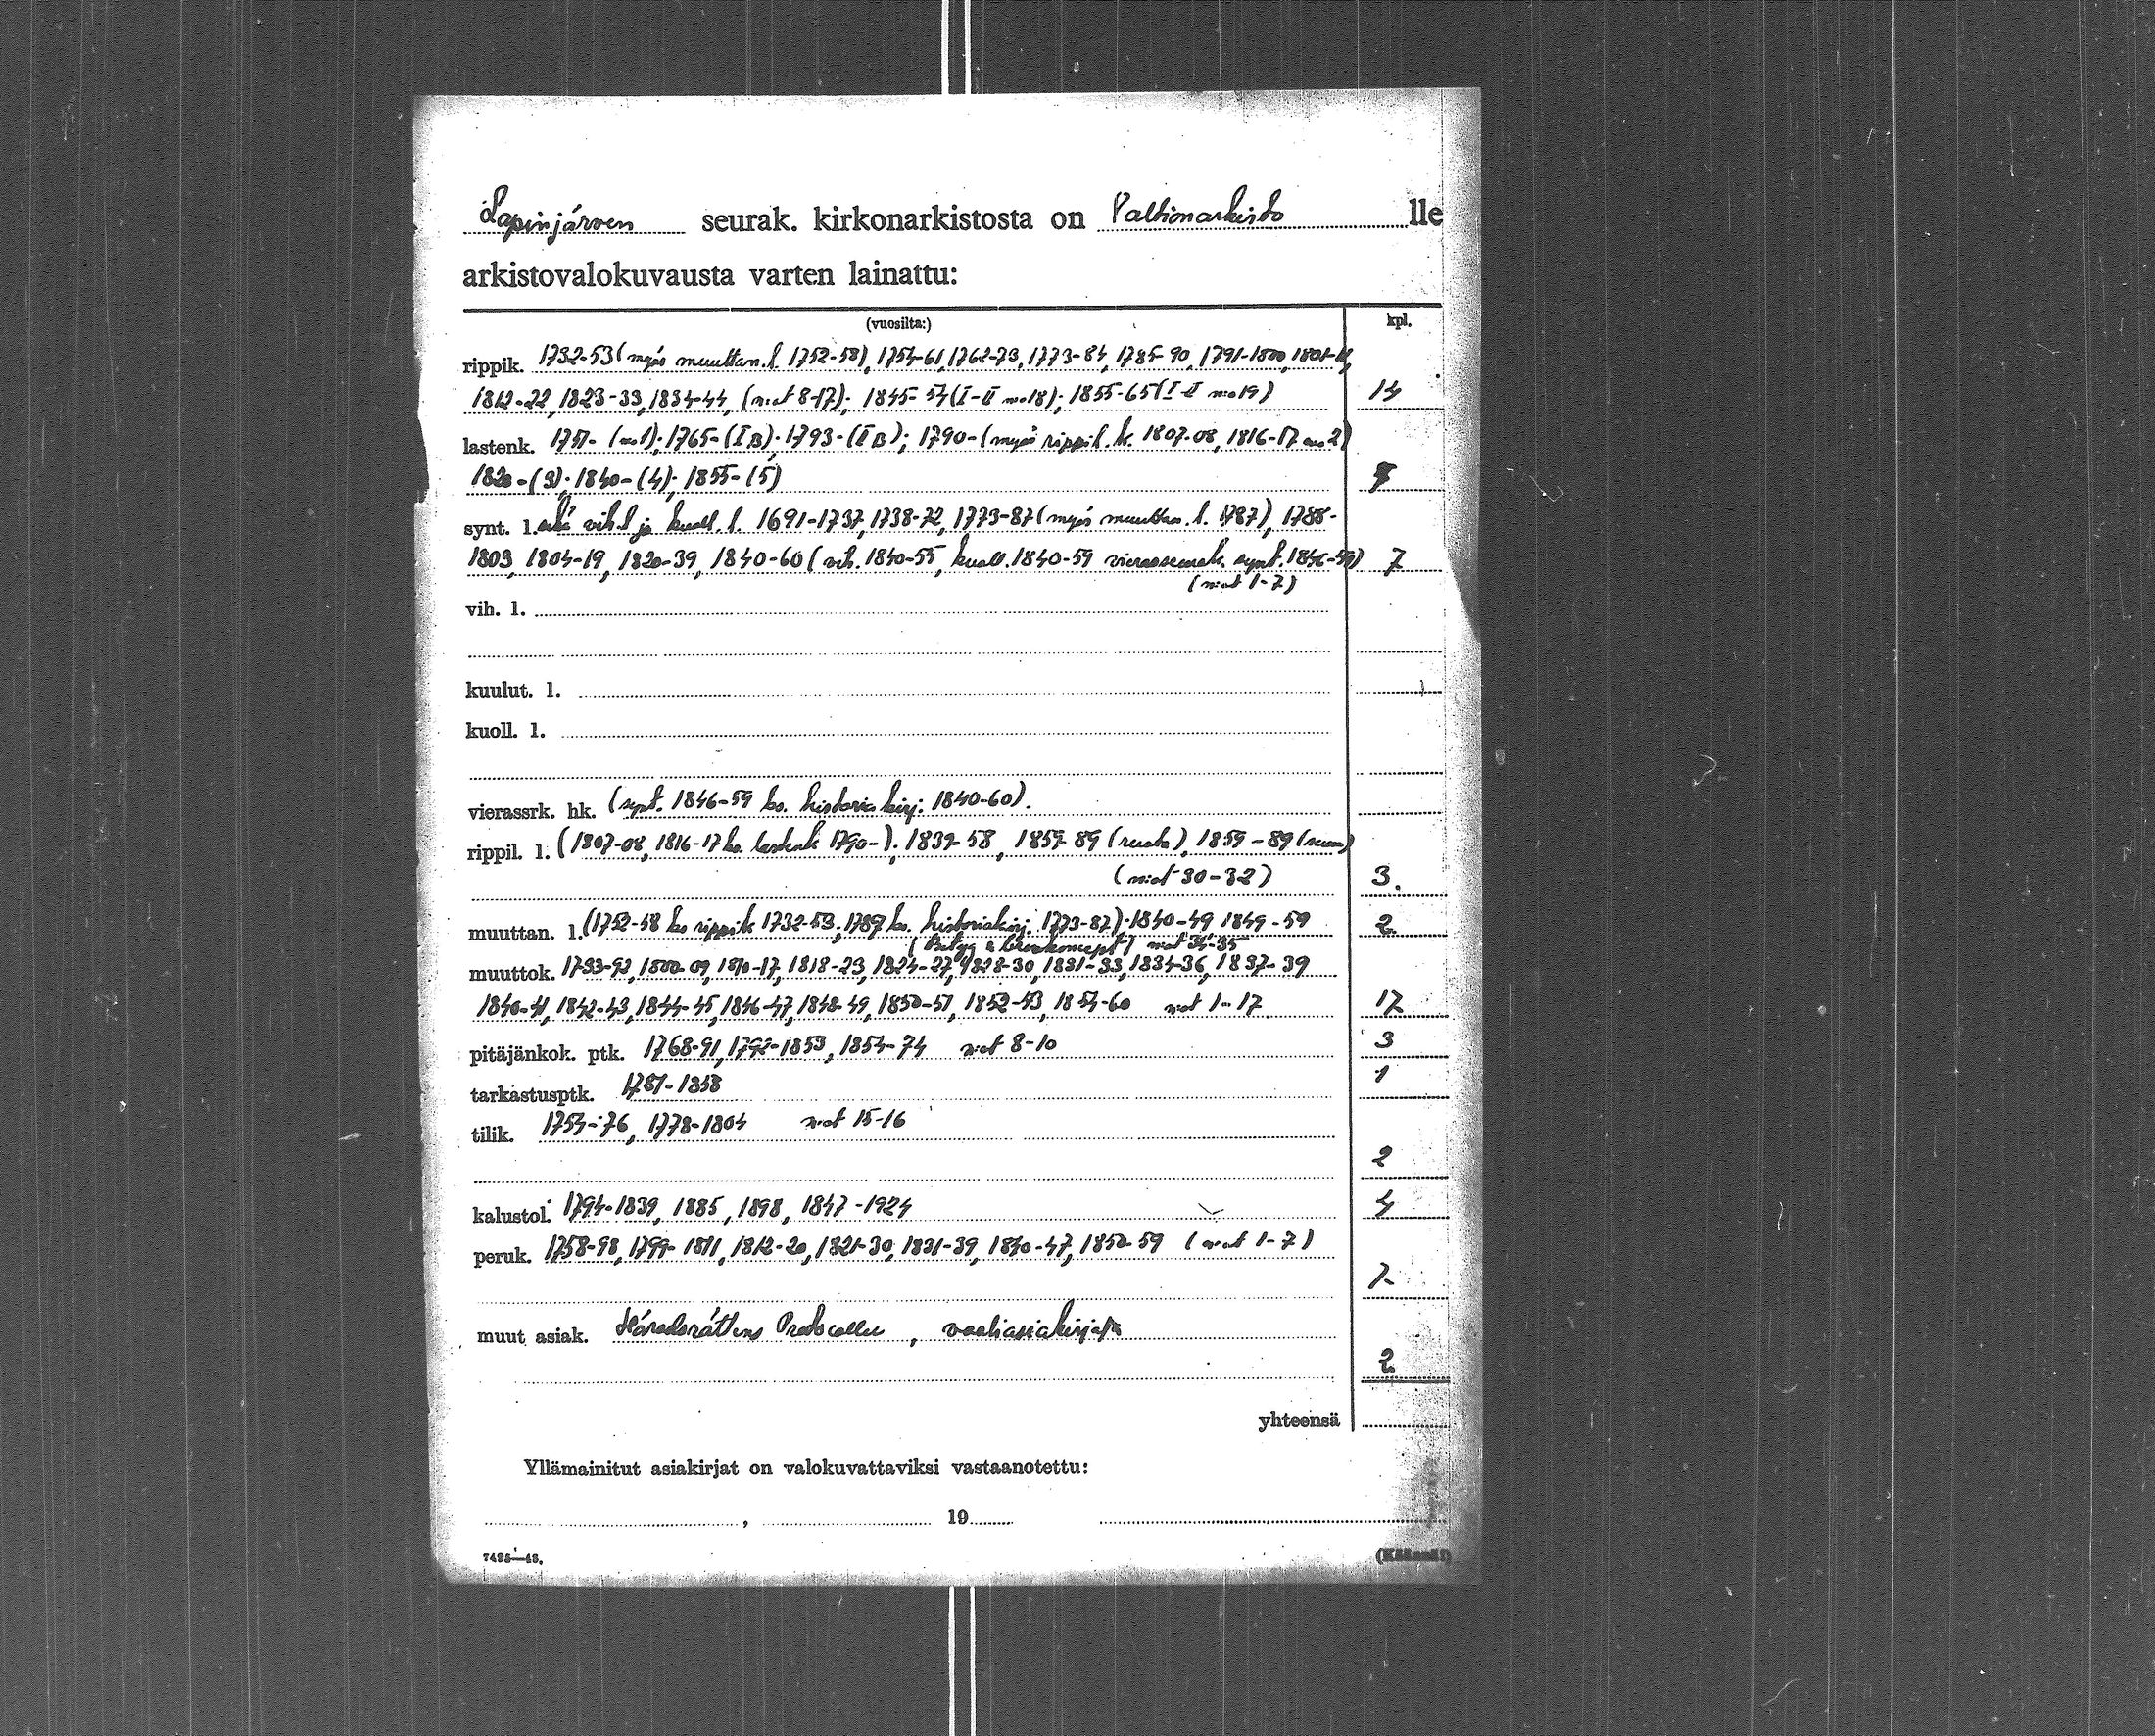 Lapinjärven seurak. kirkonarkistosta on Valtionarkisto lle
arkistovalokuvausta varten lainattu:
(vuosilta:) kpl.
rippik. 1732-53 (myös muuttan. l. 1752-58), 1754-61, 1762-73, 1773-84, 1785-90, 1791-1800, 1801-11,
1812-22, 1823-33, 1834-44, (n:ot 8-17); 1845-54 (I-II n:o 18); 1855-65 (I-II n:o 19) 14
lastenk. 1751- (n:o 1); 1765- (I B); 1793- (II B); 1790- (myös rippil. k. 1807-08, 1816-17 n:o 2)
1820- (3); 1840- (4); 1855- (5) 7
synt. l. sekä vih. l ja kuoll. l. 1691-1737, 1738-72, 1773-87 (myös muuttan. l. 1787), 1788-
1803, 1804-19, 1820-39, 1840-60 (vih. 1840-55, kuoll. 1840-59 vierasseurak. synt. 1846-59) 7
(n:ot 1-7)
vih. l.
kuulut. l.
kuoll. l.
vierassrk. hk. (synt. 1846-59 ks. historiakirj. 1840-60).
rippil. l. (1807-08, 1816-17 ks. lastenk 1790-). 1839-58, 1859-89 (ruots), 1859-89 (suom)
(n:ot 30-32) 3.
muuttan. l. (1752-58 ks rippik 1732-53; 1787 ks. historiakirj. 1773-87). 1840-49 1849-59 2
n:ot 34-35
muuttok. 1793-92, 1800-09, 1810-17, 1818-23, 1824-27, 1828-30, 1831-33, 1834-36, 1837-39
1840-41, 1842-43, 1844-45, 1846-47, 1848-49, 1850-51, 1852-53, 1854-60 n:ot 1-17 17
pitäjänkok. ptk. 1768-91, 1792-1853, 1854-74 n:ot 8-10 3
tarkastusptk. 1781-1858 1
tilik. 1754-76, 1778-1804 n:ot 15-16
2
kalustol. 1794-1839, 1885, 1898, 1847-1924 4
peruk. 1758-98, 1799-1811, 1812-20, 1821-30, 1831-39, 1840-47, 1850-59 (n:ot 1-7)
7.
muut asiak. Häradsrättens Protocoller, vaaliasiakirjoja
2
yhteensä
Yllämainitut asiakirjat on valokuvattaviksi vastaanotettu:
, 19
7495—48. (Käännä!)